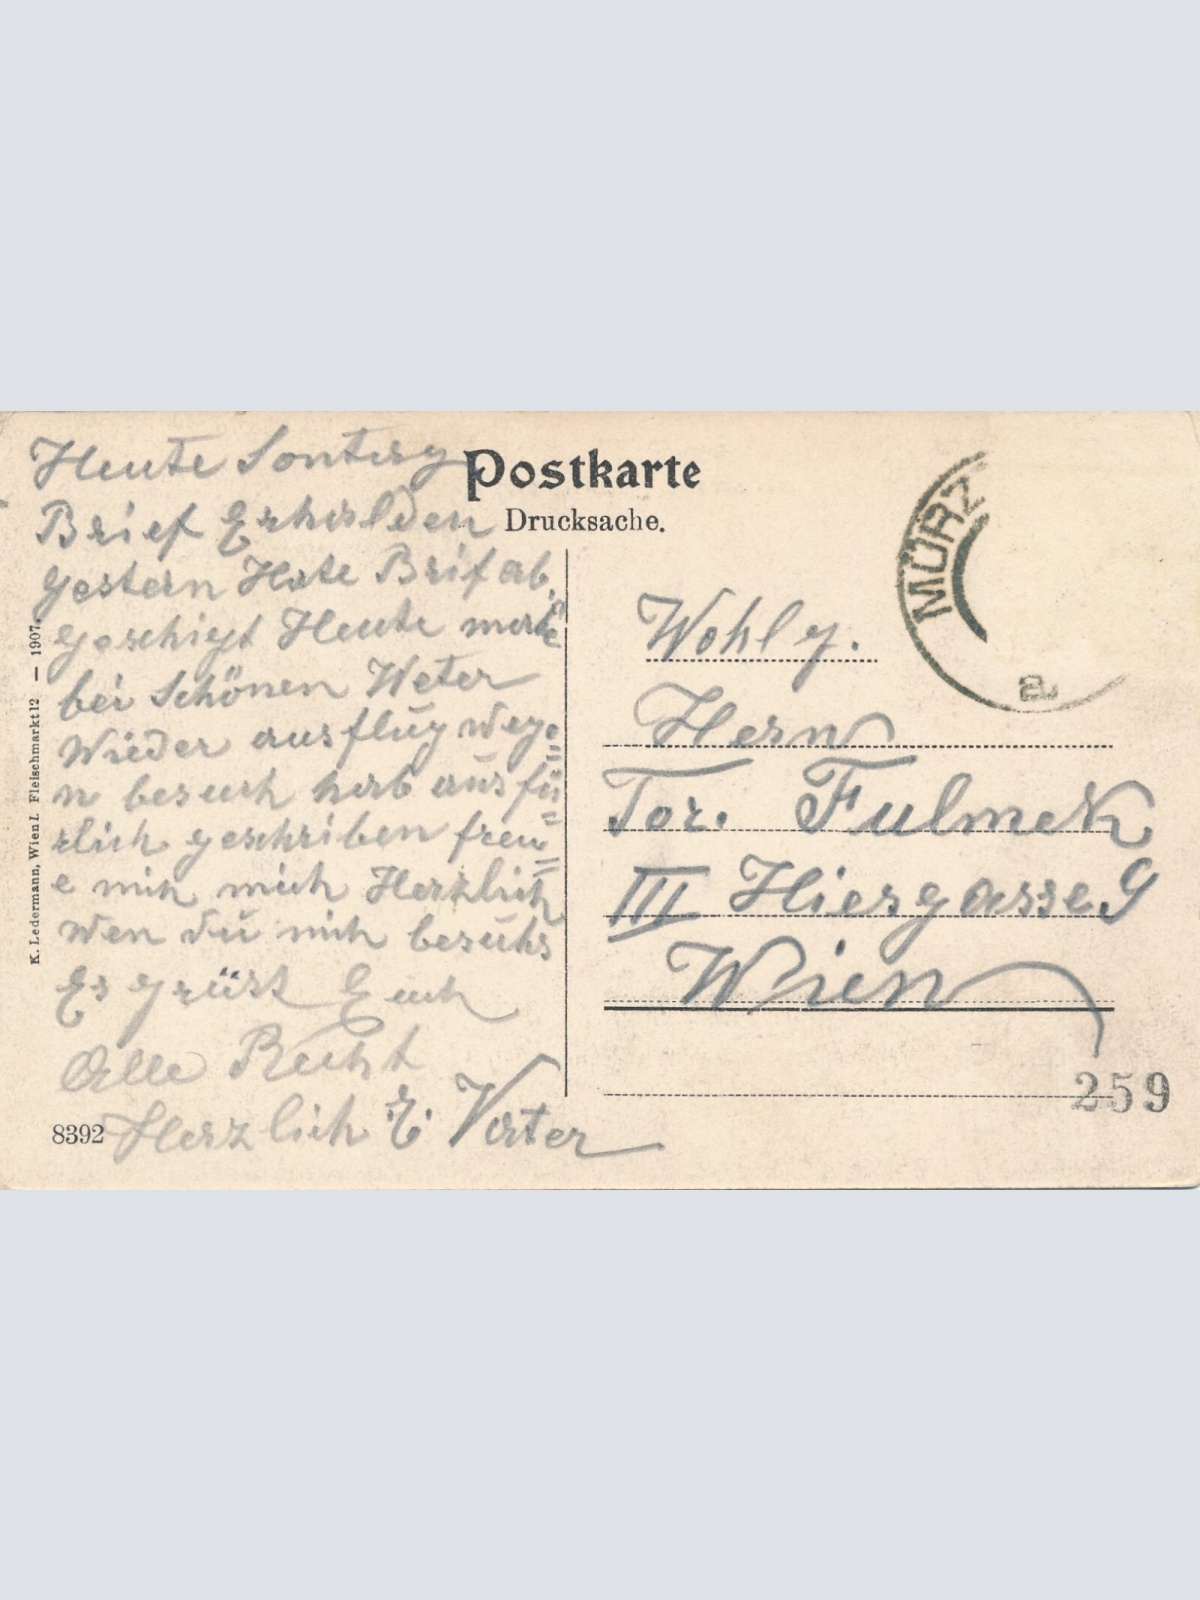 Postkarte
Drucksache.
Heute Sontag
Brief Erhalden
gestern Hate Brif ab
geschigt Heute
bei Schönen Weter
Wieder ausflug wege=
n besuch hab ausfü=
rlich geschriben freu=
e mich mich Herzlich
wen du mich besuhs
Es grüst Euch
Alle Recht
Herzlich E. Vater
8392
K. Ledermann, Wien I. Fleischmarkt 12 — 1907.
MÜRZ
a
Wohlg.
Hern
Tor. Fulmek
III Hiesgasse 9
Wien
259